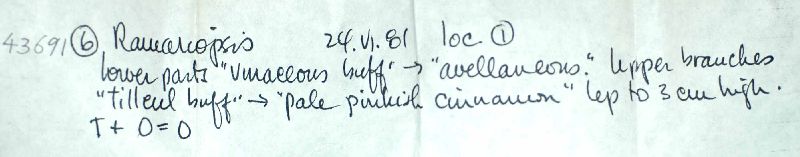 43691 ⑥ Ramariopsis 24.VI.81 loc ①
lower parts "vinaceous buff" → "avellaneous." Upper branches
"tilleul buff" → "pale pinkish cinnamon" up to 3 cm high.
T + O = O